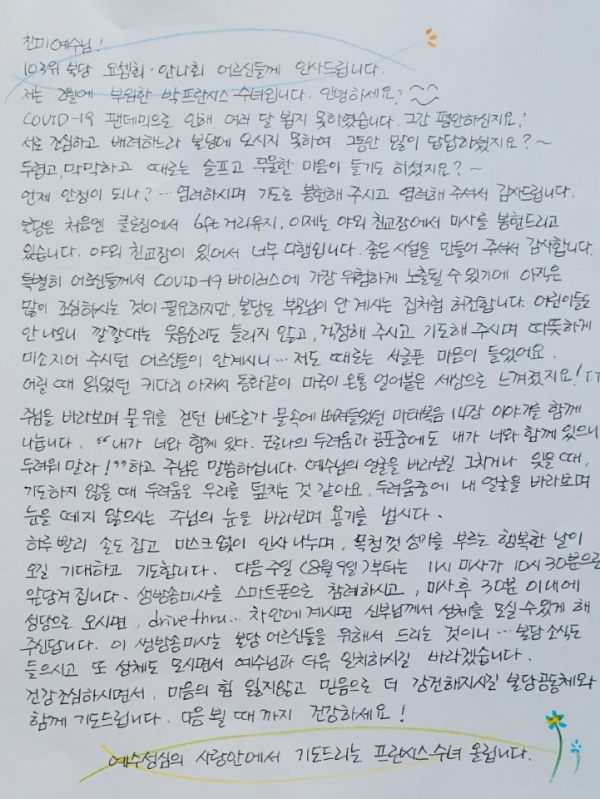 찬미 예수님!
103위 성당 요셉회·안나회 어르신들께 인사드립니다.
저는 2월에 부임한 박 프란시스 수녀입니다. 안녕하세요?
COVID-19 팬데믹으로 인해 여러 달 뵙지 못하였습니다. 그간 평안하신지요?
서로 조심하고 배려하느라 본당에 오시지 못하여 그동안 많이 답답하셨지요?~
두렵고, 막막하고 때로는 슬프고 우울한 마음이 들기도 하셨지요?~
언제 안정이 되나?… 염려하시며 기도로 봉헌해 주시고 염려해 주셔서 감사드립니다.
본당은 처음엔 클로징에서 6ft 거리유지, 이제는 야외 친교장에서 미사를 봉헌드리고
있습니다. 야외 친교장이 있어서 너무 다행입니다. 좋은 시설을 만들어 주셔서 감사합니다.
특별히 어르신들께서 COVID-19 바이러스에 가장 위험하게 노출될 수 있기에 아직은
많이 조심하시는 것이 필요하지만, 본당은 부모님이 안 계시는 집처럼 허전합니다. 어린이들도
안 나오니 깔깔대는 웃음소리도 들리지 않고, 걱정해 주시고 기도해 주시며 따뜻하게
미소지어 주시던 어르신들이 안계시니… 저도 때로는 서글픈 마음이 들었어요.
어릴 때 읽었던 키다리 아저씨 동화같이 마음이 온통 얼어붙은 세상으로 느껴졌지요! T.T
주님을 바라보며 물 위를 걷던 베드로가 물속에 빠져들었던 마태복음 14장 이야기를 함께
나눕니다. "내가 너와 함께 있다. 코로나의 두려움과 공포중에도 내가 너와 함께 있으니
두려워 말라!"하고 주님은 말씀하십니다. 예수님의 얼굴을 바라보길 그치거나 잊을 때,
기도하지 않을 때 두려움은 우리를 덮치는 것 같아요. 두려움중에 내 얼굴을 바라보며
눈을 떼지 않으시는 주님의 눈을 바라보며 용기를 냅시다.
하루 빨리 손도 잡고 마스크 없이 인사 나누며, 목청껏 성가를 부르는 행복한 날이
오길 기대하고 기도합니다. 다음 주일 (8월 9일)부터는 11시 미사가 10시 30분으로
앞당겨 집니다. 생방송미사를 스마트폰으로 참례하시고, 미사후 30분 이내에
성당으로 오시면, drive thru… 차안에 계시면 신부님께서 성체를 모실 수 있게 해
주신답니다. 이 생방송미사는 본당 어르신들을 위해서 드리는 것이니… 본당 소식도
들으시고 또 성체도 모시면서 예수님과 더욱 일치하시길 바라겠습니다.
건강조심하시면서, 마음의 힘 잃지않고 믿음으로 더 강건해지시길 본당공동체와
함께 기도드립니다. 다음 뵐 때 까지 건강하세요!
예수성심의 사랑안에서 기도드리는 프란시스 수녀 올립니다.